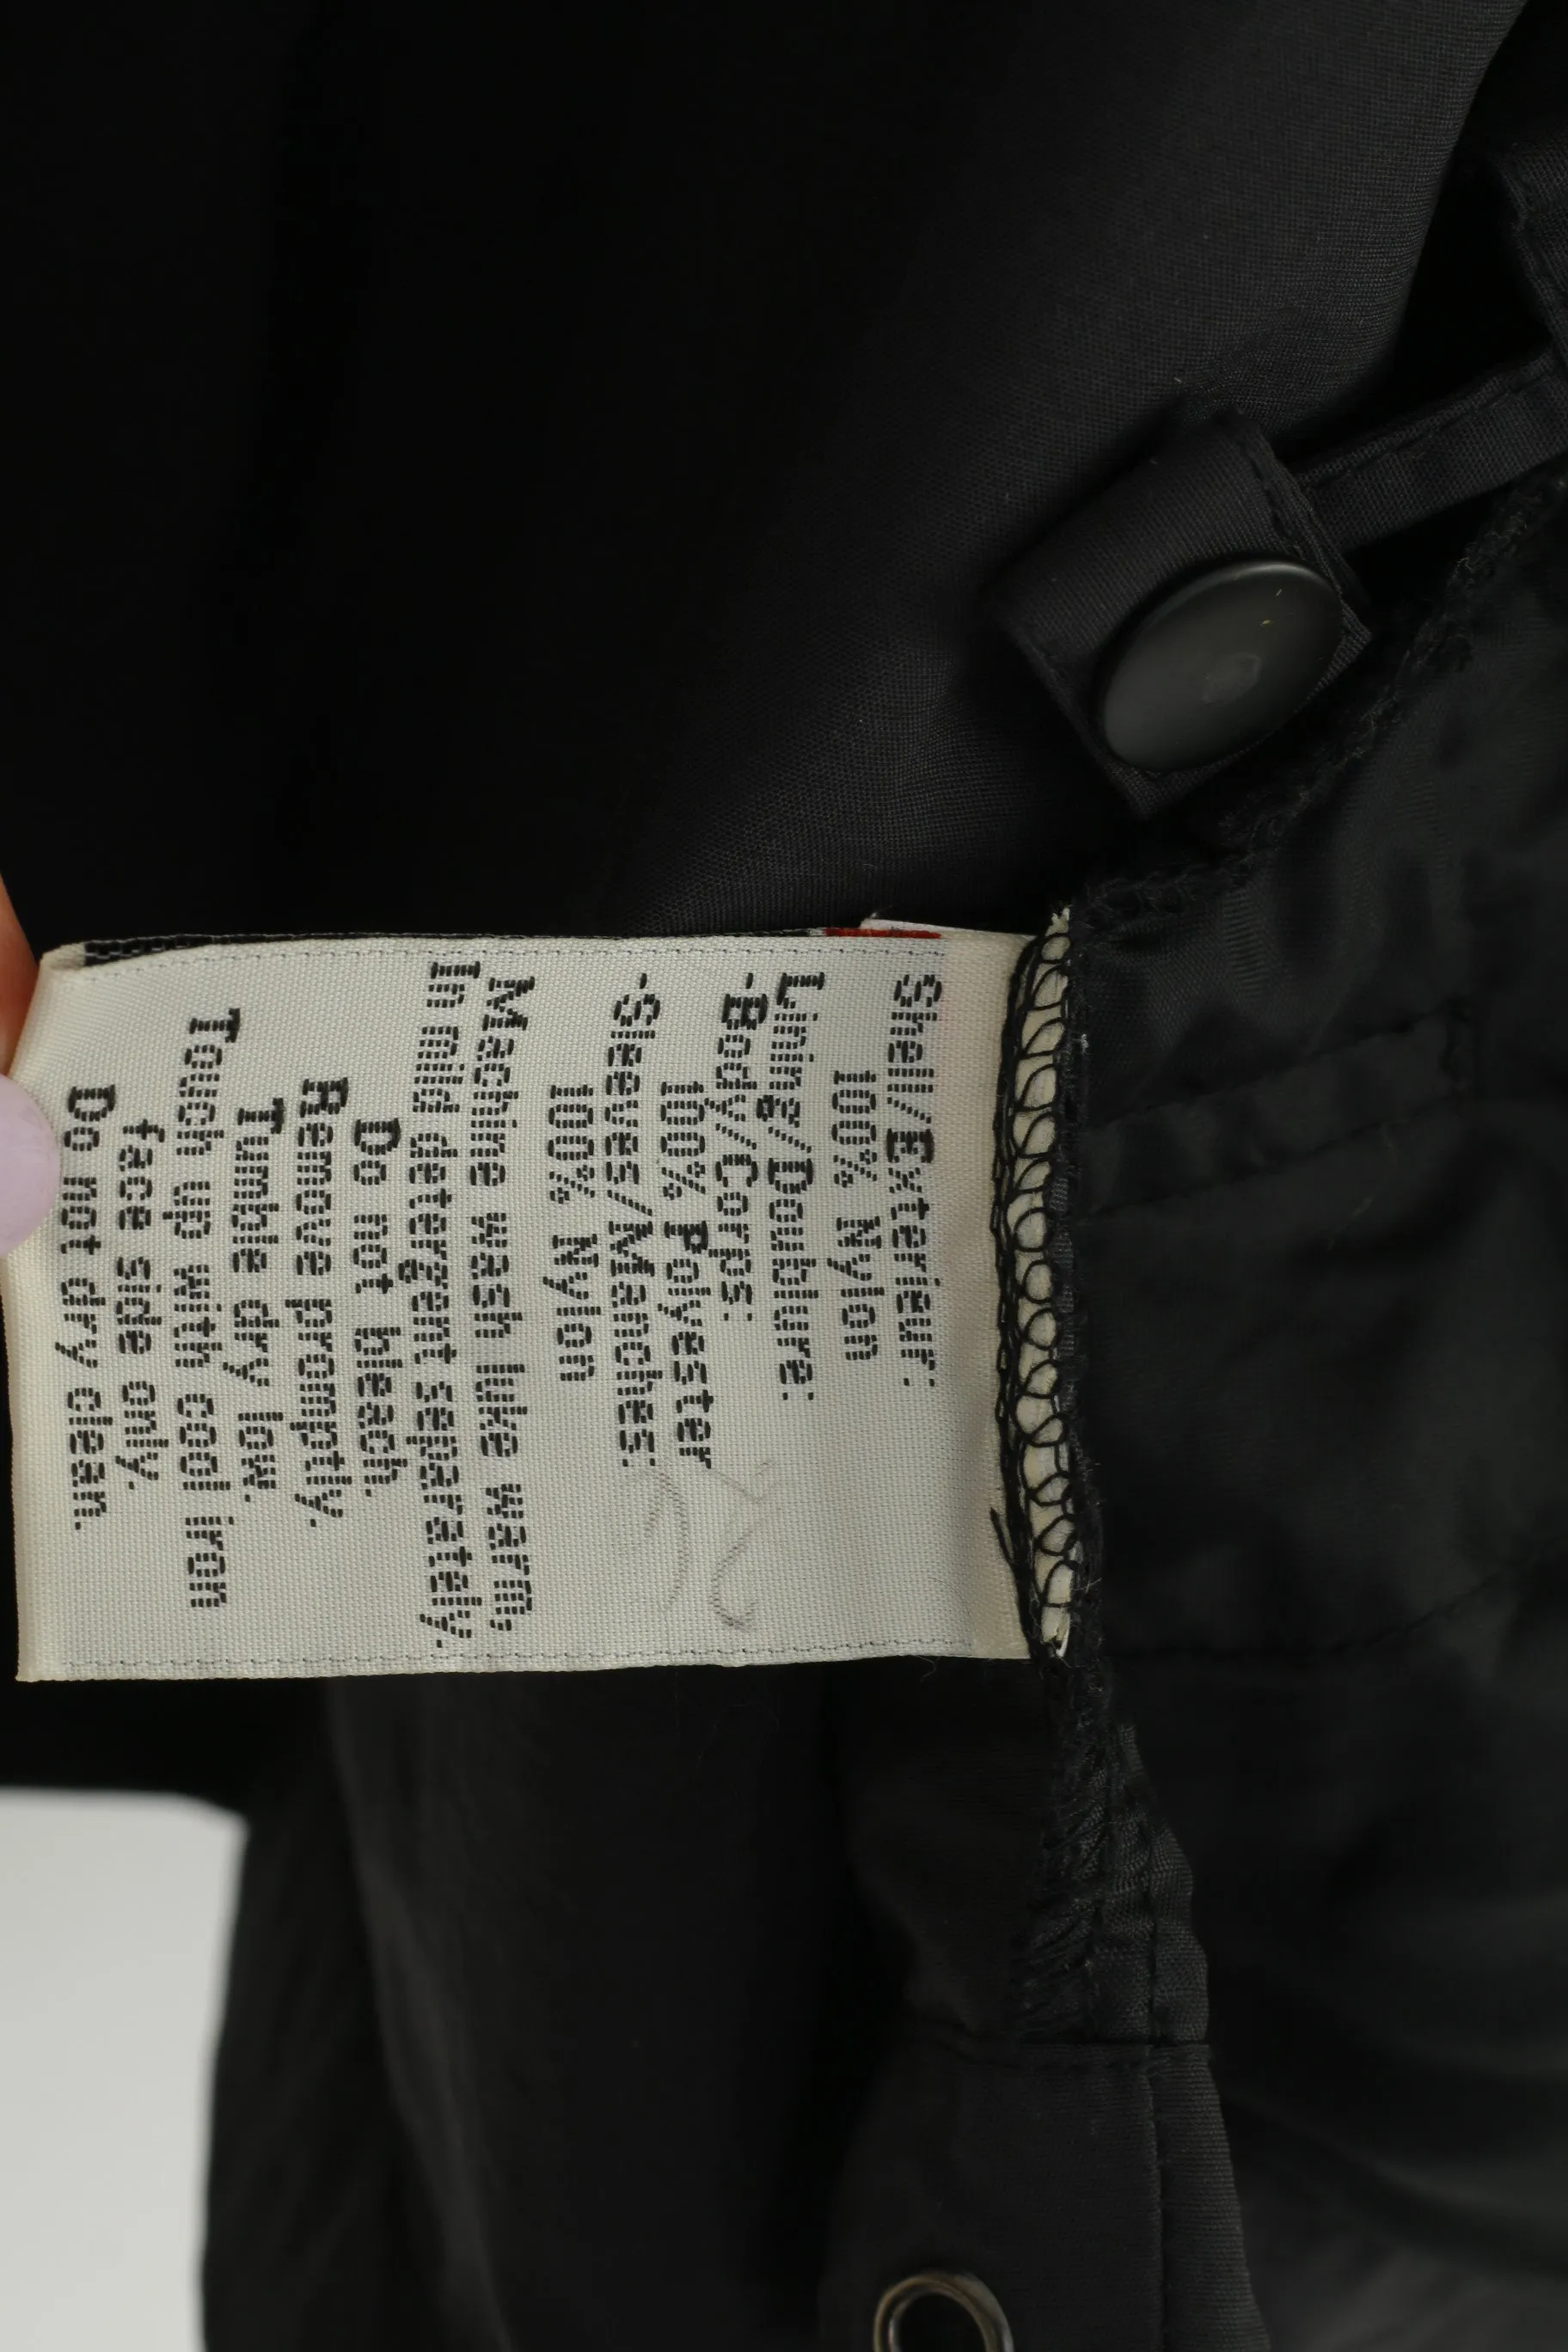 Shell/Exterieur:
100% Nylon
Lining/Doublure:
-Body/Corps:
100% Polyester
-Sleeves/Manches:
100% Nylon
Machine wash luke warm,
In mild detergent separately.
Do not bleach.
Remove promptly.
Tumble dry low.
Touch up with cool iron
face side only.
Do not dry clean.